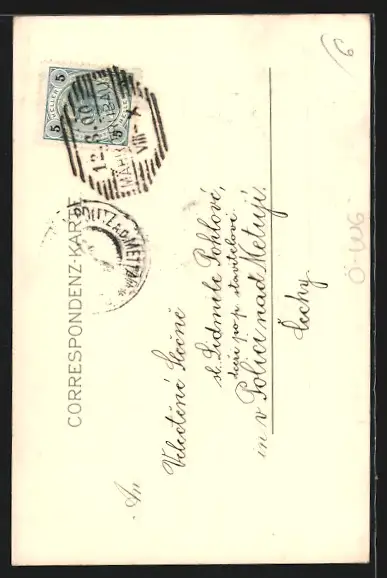 CORRESPONDENZ-KARTE
5 HELLER 5
12.8.00
MARIA
VIII-X
POLITZ A.D. METTAU
An
Velectěné Slečně
sl. Lidmile Pohlové,
stavitelově
in v Polici nad Metují.
Čechy
Ö-W6
6